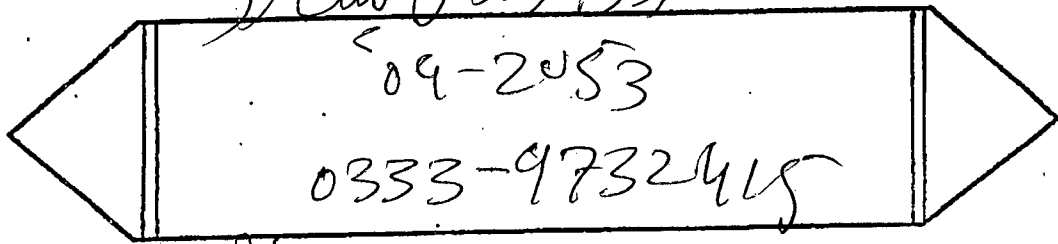 09-2053
0333-9732415